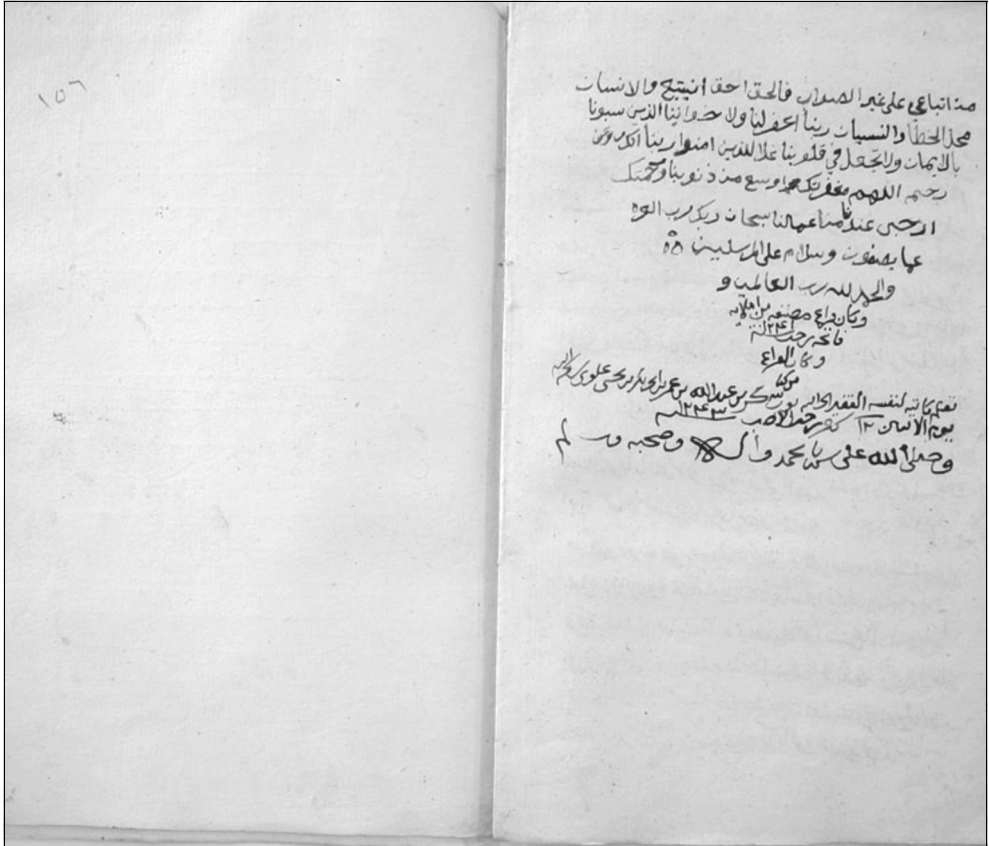 من اتباعي على غير الصواب فالحق احق ان يتبع والانسان
محل الخطأ والنسيان ربنا اغفر لنا ولاخواننا الذين سبقونا
بالايمان ولا تجعل في قلوبنا غلا للذين امنوا ربنا انك رءوف
رحيم اللهم مغفرتك اوسع من ذنوبنا ورحمتك
ارجى عندنا من اعمالنا سبحان ربك رب العزه
عما يصفون وسلام على المرسلين
والحمد لله رب العالمين و
وكان فراغ مصنفه من املائه
فاتحة رجب سنة
وكان الفراغ
بقلم كاتبه لنفسه الفقير الى الله بن عبد الله بن عمر بن ابي بكر بن يحيى علوي
يوم الاثنين ١٢ رجب الاصب سنة ١٢٤٣
وصلى الله على سيدنا محمد واله وصحبه وسلم
١٥٦